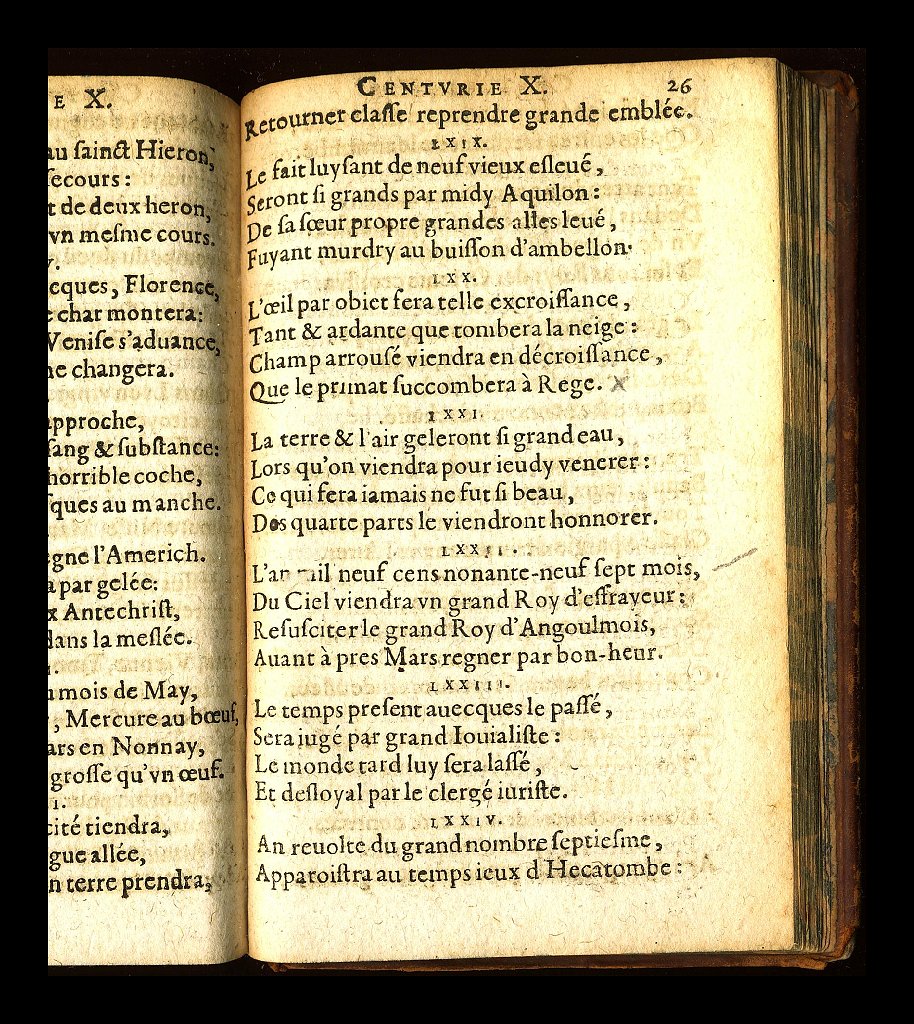 E X.
au ſainct Hieron,
ſecours:
t de deux heron,
vn meſme cours.
ecques, Florence,
char montera:
Veniſe s'aduance,
ne changera.
approche,
ſang & ſubſtance:
horrible coche,
ques au manche.
gne l'Americh.
a par gelée:
x Antechriſt,
dans la meſlée.
mois de May,
, Mercure au bœuf,
ars en Nonnay,
groſſe qu'vn œuf.
I.
cité tiendra,
gue allée,
n terre prendra,
CENTVRIE X. 26
Retourner claſſe reprendre grande emblée.
LXIX.
Le fait luyſant de neuf vieux eſleué,
Seront ſi grands par midy Aquilon:
De ſa ſœur propre grandes alles leué,
Fuyant murdry au buiſſon d'ambellon.
LXX.
L'œil par obiet fera telle excroiſſance,
Tant & ardante que tombera la neige:
Champ arrouſé viendra en décroiſſance,
Que le primat ſuccombera à Rege.
LXXI.
La terre & l'air geleront ſi grand eau,
Lors qu'on viendra pour ieudy venerer:
Ce qui ſera iamais ne fut ſi beau,
Des quarte parts le viendront honnorer.
LXXII.
L'an mil neuf cens nonante-neuf ſept mois,
Du Ciel viendra vn grand Roy d'effrayeur:
Reſuſciter le grand Roy d'Angoulmois,
Auant à pres Mars regner par bon-heur.
LXXIII.
Le temps preſent auecques le paſſé,
Sera jugé par grand Iouialiſte:
Le monde tard luy ſera laſſé,
Et deſloyal par le clergé iuriſte.
LXXIV.
An reuolte du grand nombre ſeptieſme,
Apparoiſtra au temps ieux d Hecatombe: